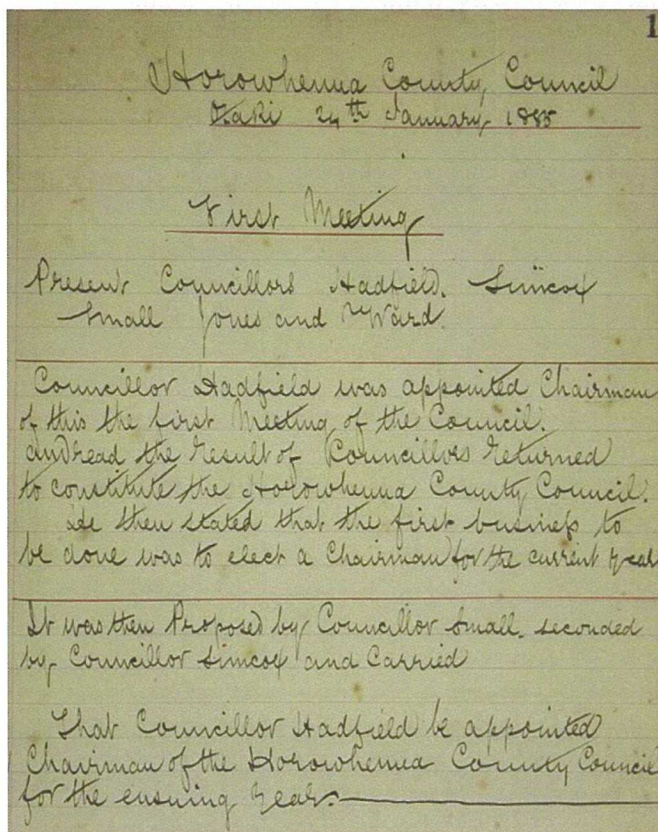 1
Horowhenua County Council
Otaki 24th January 1885
First Meeting
Present Councillors Hadfield. Simcox
Small Jones and Ward.
Councillor Hadfield was appointed Chairman
of this the first Meeting of the Council.
and read the result of Councillors returned
to constitute the Horowhenua County Council.
He then stated that the first business to
be done was to elect a Chairman for the current year
It was then Proposed by Councillor Small. seconded
by Councillor Simcox and Carried
That Councillor Hadfield be appointed
Chairman of the Horowhenua County Council
for the ensuing year.